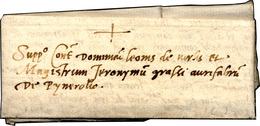 Supp.º Cont. Dominū leonis de nortis et
Magistrum Jeronymū grassi aurifabrū
De Pynerolio